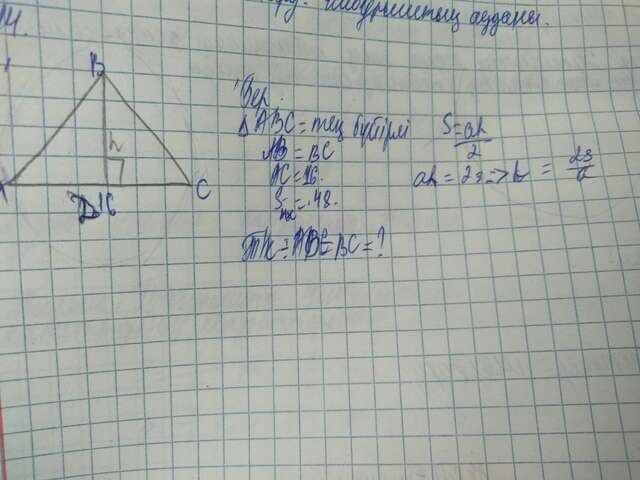 үшбұрыштың ауданы.
14.
B
h
A
D 16
C
Бер.
ΔABC = тең бүйірлі
AB = BC
AC = 16.
S = 48.
Т/к = AB = BC = ?
S = ah/2
ah = 2s => h = 2s/a